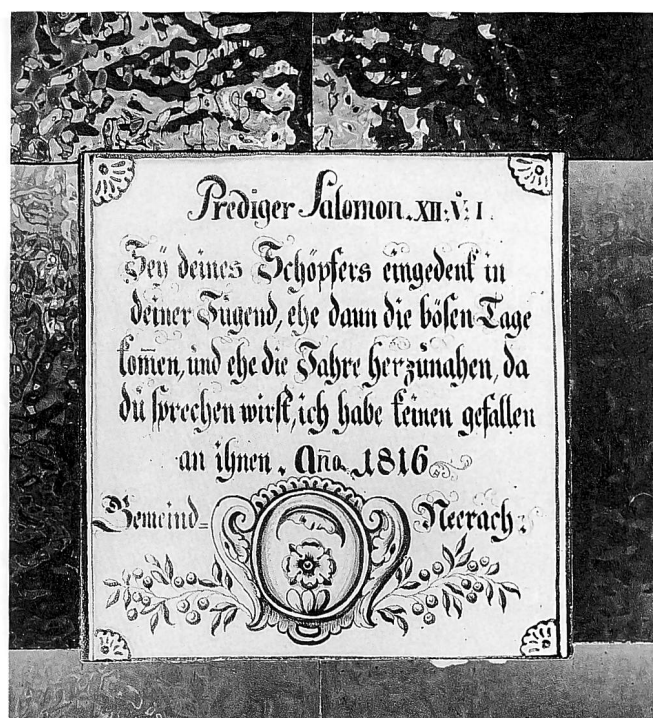 Prediger Salomon. XII: V: I.
Seÿ deines Schöpfers eingedenk in
deiner Jugend, ehe dann die bösen Tage
kom̄en, und ehe die Jahre herzunahen, da
du sprechen wirst, ich habe keinen gefallen
an ihnen. Año. 1816
Gemeind= Neerach: